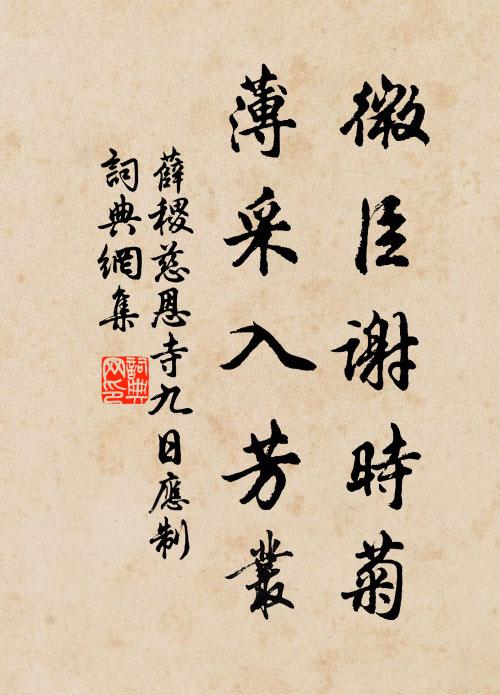 微臣謝時菊
薄采入芳叢
薛稷慈恩寺九日應制
詞典網集
詞典網印